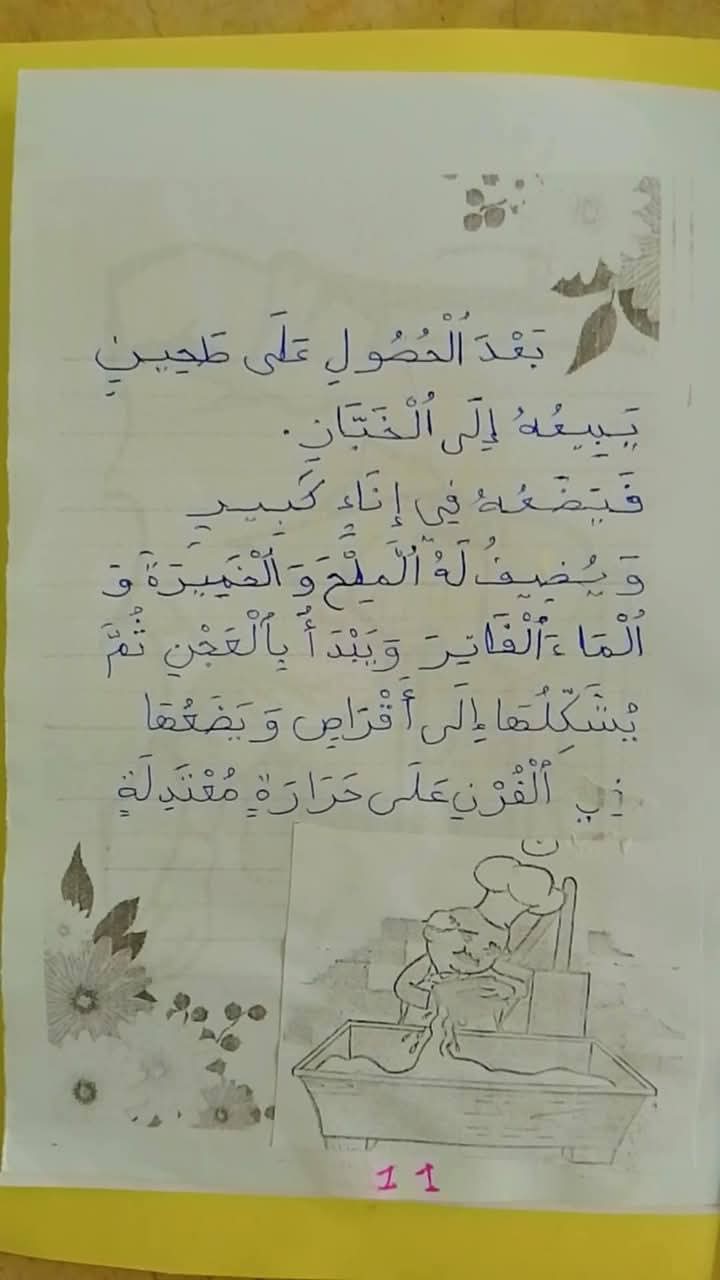 بَعْدَ ٱلْحُصُولِ عَلَى طَحِينٍ
يَبِيعُهُ إِلَى ٱلْخَبَّازِ.
فَيَضَعُهُ فِي إِنَاءٍ كَبِيرٍ
وَيُضِيفُ لَهُ ٱلْمِلْحَ وَٱلْخَمِيرَةَ وَ
ٱلْمَاءَ ٱلْفَاتِرَ وَيَبْدَأُ بِٱلْعَجْنِ ثُمَّ
يُشَكِّلُهَا إِلَى أَقْرَاصٍ وَيَضَعُهَا
فِي ٱلْفُرْنِ عَلَى حَرَارَةٍ مُعْتَدِلَةٍ
11